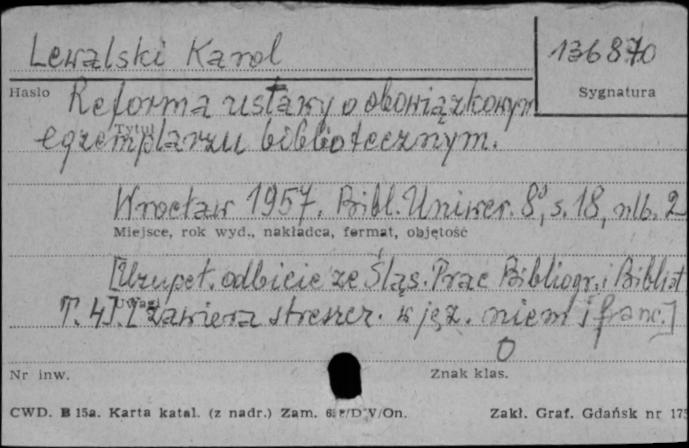 Lewalski Karol
136870
Hasło
Sygnatura
Reforma ustawy o obowiązkowym
Tytuł
egzemplarzu bibliotecznym.
Wrocław 1957, Bibl. Uniwer. 8°, s. 18, nlb. 2
Miejsce, rok wyd., nakładca, format, objętość
[Uzupeł. odbicie ze Śląs. Prac Bibliogr. i Bibliot
Uwagi
T. 4]. [Zawiera streszcz. w jęz. niem i franc.]
Nr inw.
Znak klas.
CWD. B 15a. Karta katal. (z nadr.) Zam. /D V/On.
Zakł. Graf. Gdańsk nr 175